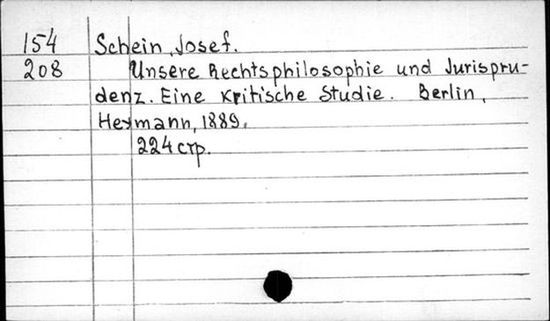 154 Schein, Josef.
208 Unsere Rechtsphilosophie und Jurispru-
denz. Eine kritische Studie. Berlin,
Heymann, 1889.
224 стр.